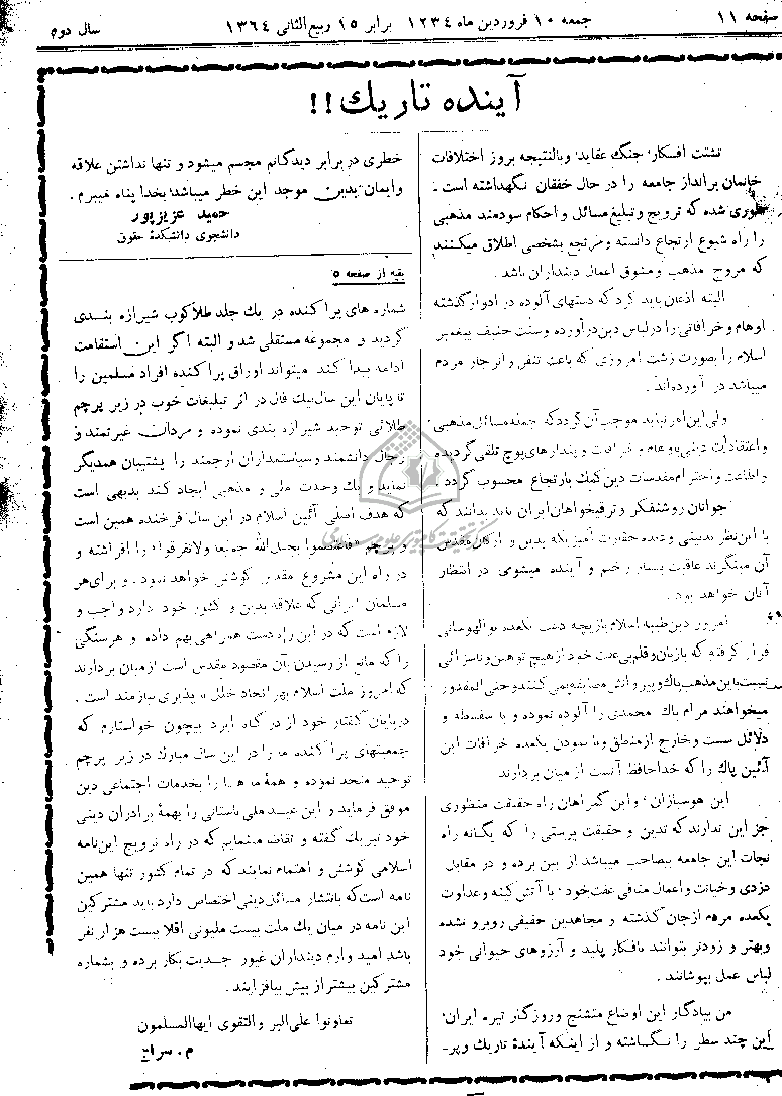 صفحه ۱۱
جمعه ۱۰ فروردین ماه ۱۲۳۴ برابر ۱۵ ربیع‌الثانی ۱۳۶۴
سال دوم
آینده تاریك!!
تشتت افکار؛ جنگ عقاید؛ وبالنتیجه بروز اختلافات
خانمان برانداز جامعه را در حال خفقان نگهداشته است .
طوری شده که ترویج و تبلیغ مسائل و احکام سودمند مذهبی
را راه شیوع ارتجاع دانسته و مرتجع بشخصی اطلاق میکنند
که مروج مذهب و مشوق اعمال دینداران باشد .
البته اذعان باید کرد که دستهای آلوده در ادوار گذشته
اوهام و خرافاتی را در لباس دین درآورده و سنت حنیف پیغمبر
اسلام را بصورت زشت امروزی که باعث تنفر و انزجار مردم
میباشد در آورده‌اند .
ولی این امر نباید موجب آن گردد که جمله مسائل مذهبی
و اعتقادات دینی باوهام و خرافات و پندارهای پوچ تلقی گردیده
و اطاعت و احترام مقدسات دین کمك بارتجاع محسوب گردد .
جوانان روشنفکر و ترقیخواهان ایران باید بدانند که
با این نظر بدبینی و دیده حقارت آمیزیکه بدین و ارکان مقدس
آن مینگرند عاقبت بسیار وخیم و آینده موحشی در انتظار
آنان خواهد بود .
امروز دین طیبه اسلام بازیچه دست یکعده بوالهوسانی
قرار گرفته که با زبان و قلم بی‌عفت خود از هیچ توهین و ناسزائی
نسبت باین مذهب پاك و پیروانش مضایقه نمی‌کنند و حتی‌المقدور
میخواهند مرام پاك محمدی را آلوده نموده و با سفسطه و
دلائل سست و خارج از منطق و با نمودن یکعده خرافات این
آئین پاك را که خدا حافظ آنست از میان بردارند
این هوسبازان ؛ و این گمراهان راه حقیقت منظوری
جز این ندارند که تدین و حقیقت پرستی را که یگانه راه
نجات این جامعه بیصاحب میباشد از بین برده و در مقابل
دزدی و خیانت و اعمال منافی عفت خود ؛ با آتش کینه و عداوت
یکعده مردم از جان گذشته و مجاهدین حقیقی روبرو نشده
و بهتر و زودتر بتوانند بافکار پلید و آرزوهای حیوانی خود
لباس عمل بپوشانند .
من بیادگار این اوضاع متشنج و روزگار تیره ایران؛
این چند سطر را نگهاشته و از اینکه آیندهٔ تاریك و پر-
خطری در برابر دیدگانم مجسم میشود و تنها نداشتن علاقه
و ایمان بدین موجد این خطر میباشد؛ بخدا پناه میبرم .
حمید عزیزپور
دانشجوی دانشکدهٔ حقوق
بقیه از صفحه ۵
شماره های پراکنده در یك جلد طلاکوب شیرازه بندی
گردید و مجموعه مستقلی شد و البته اگر این استقامت
ادامه پیدا کند میتواند اوراق پراکنده افراد مسلمین را
تا پایان این سال نیك فال در اثر تبلیغات خوب در زیر پرچم
طلائی توحید شیرازه بندی نموده و مردان غیرتمند و
رجال دانشمند و سیاستمداران ارجمند را پشتیبان همدیگر
نماید و یك وحدت ملی و مذهبی ایجاد کند بدیهی است
که هدف اصلی آئین اسلام در این سال فرخنده همین است
و پرچم «واعتصموا بحبل‌الله جمیعا ولاتفرقوا» را افراشته و
در راه این مشروع مقدس کوشش خواهد نمود . و برای هر
مسلمان ایرانی که علاقه بدین و کشور خود دارد واجب و
لازم است که در این راه دست همراهی بهم داده و هر سنگی
را که مانع از رسیدن بآن مقصود مقدس است از میان بردارند
که امروز ملت اسلام بهر اتحاد خلل ناپذیری نیازمند است .
در پایان گفتار خود از درگاه ایزد بیچون خواستارم که
جمعیتهای پراکنده ما را در این سال مبارك در زیر پرچم
توحید متحد نموده و همهٔ ماها را بخدمات اجتماعی دین
موفق فرماید و این عید ملی باستانی را بهمهٔ برادران دینی
خود تبریك گفته و تقاضا مینمایم که در راه ترویج این نامه
اسلامی کوشش و اهتمام نمایند که در تمام کشور تنها همین
نامه است که بانتشار مسائل دینی اختصاص دارد باید مشترکین
این نامه در میان یك ملت بیست ملیونی اقلا بیست هزار نفر
باشد امیدوارم دینداران غیور جدیت بکار برده و بشماره
مشترکین بیشتر از پیش بیافزایند .
تعاونوا علی‌البر والتقوی ایها‌المسلمون
م . سراج